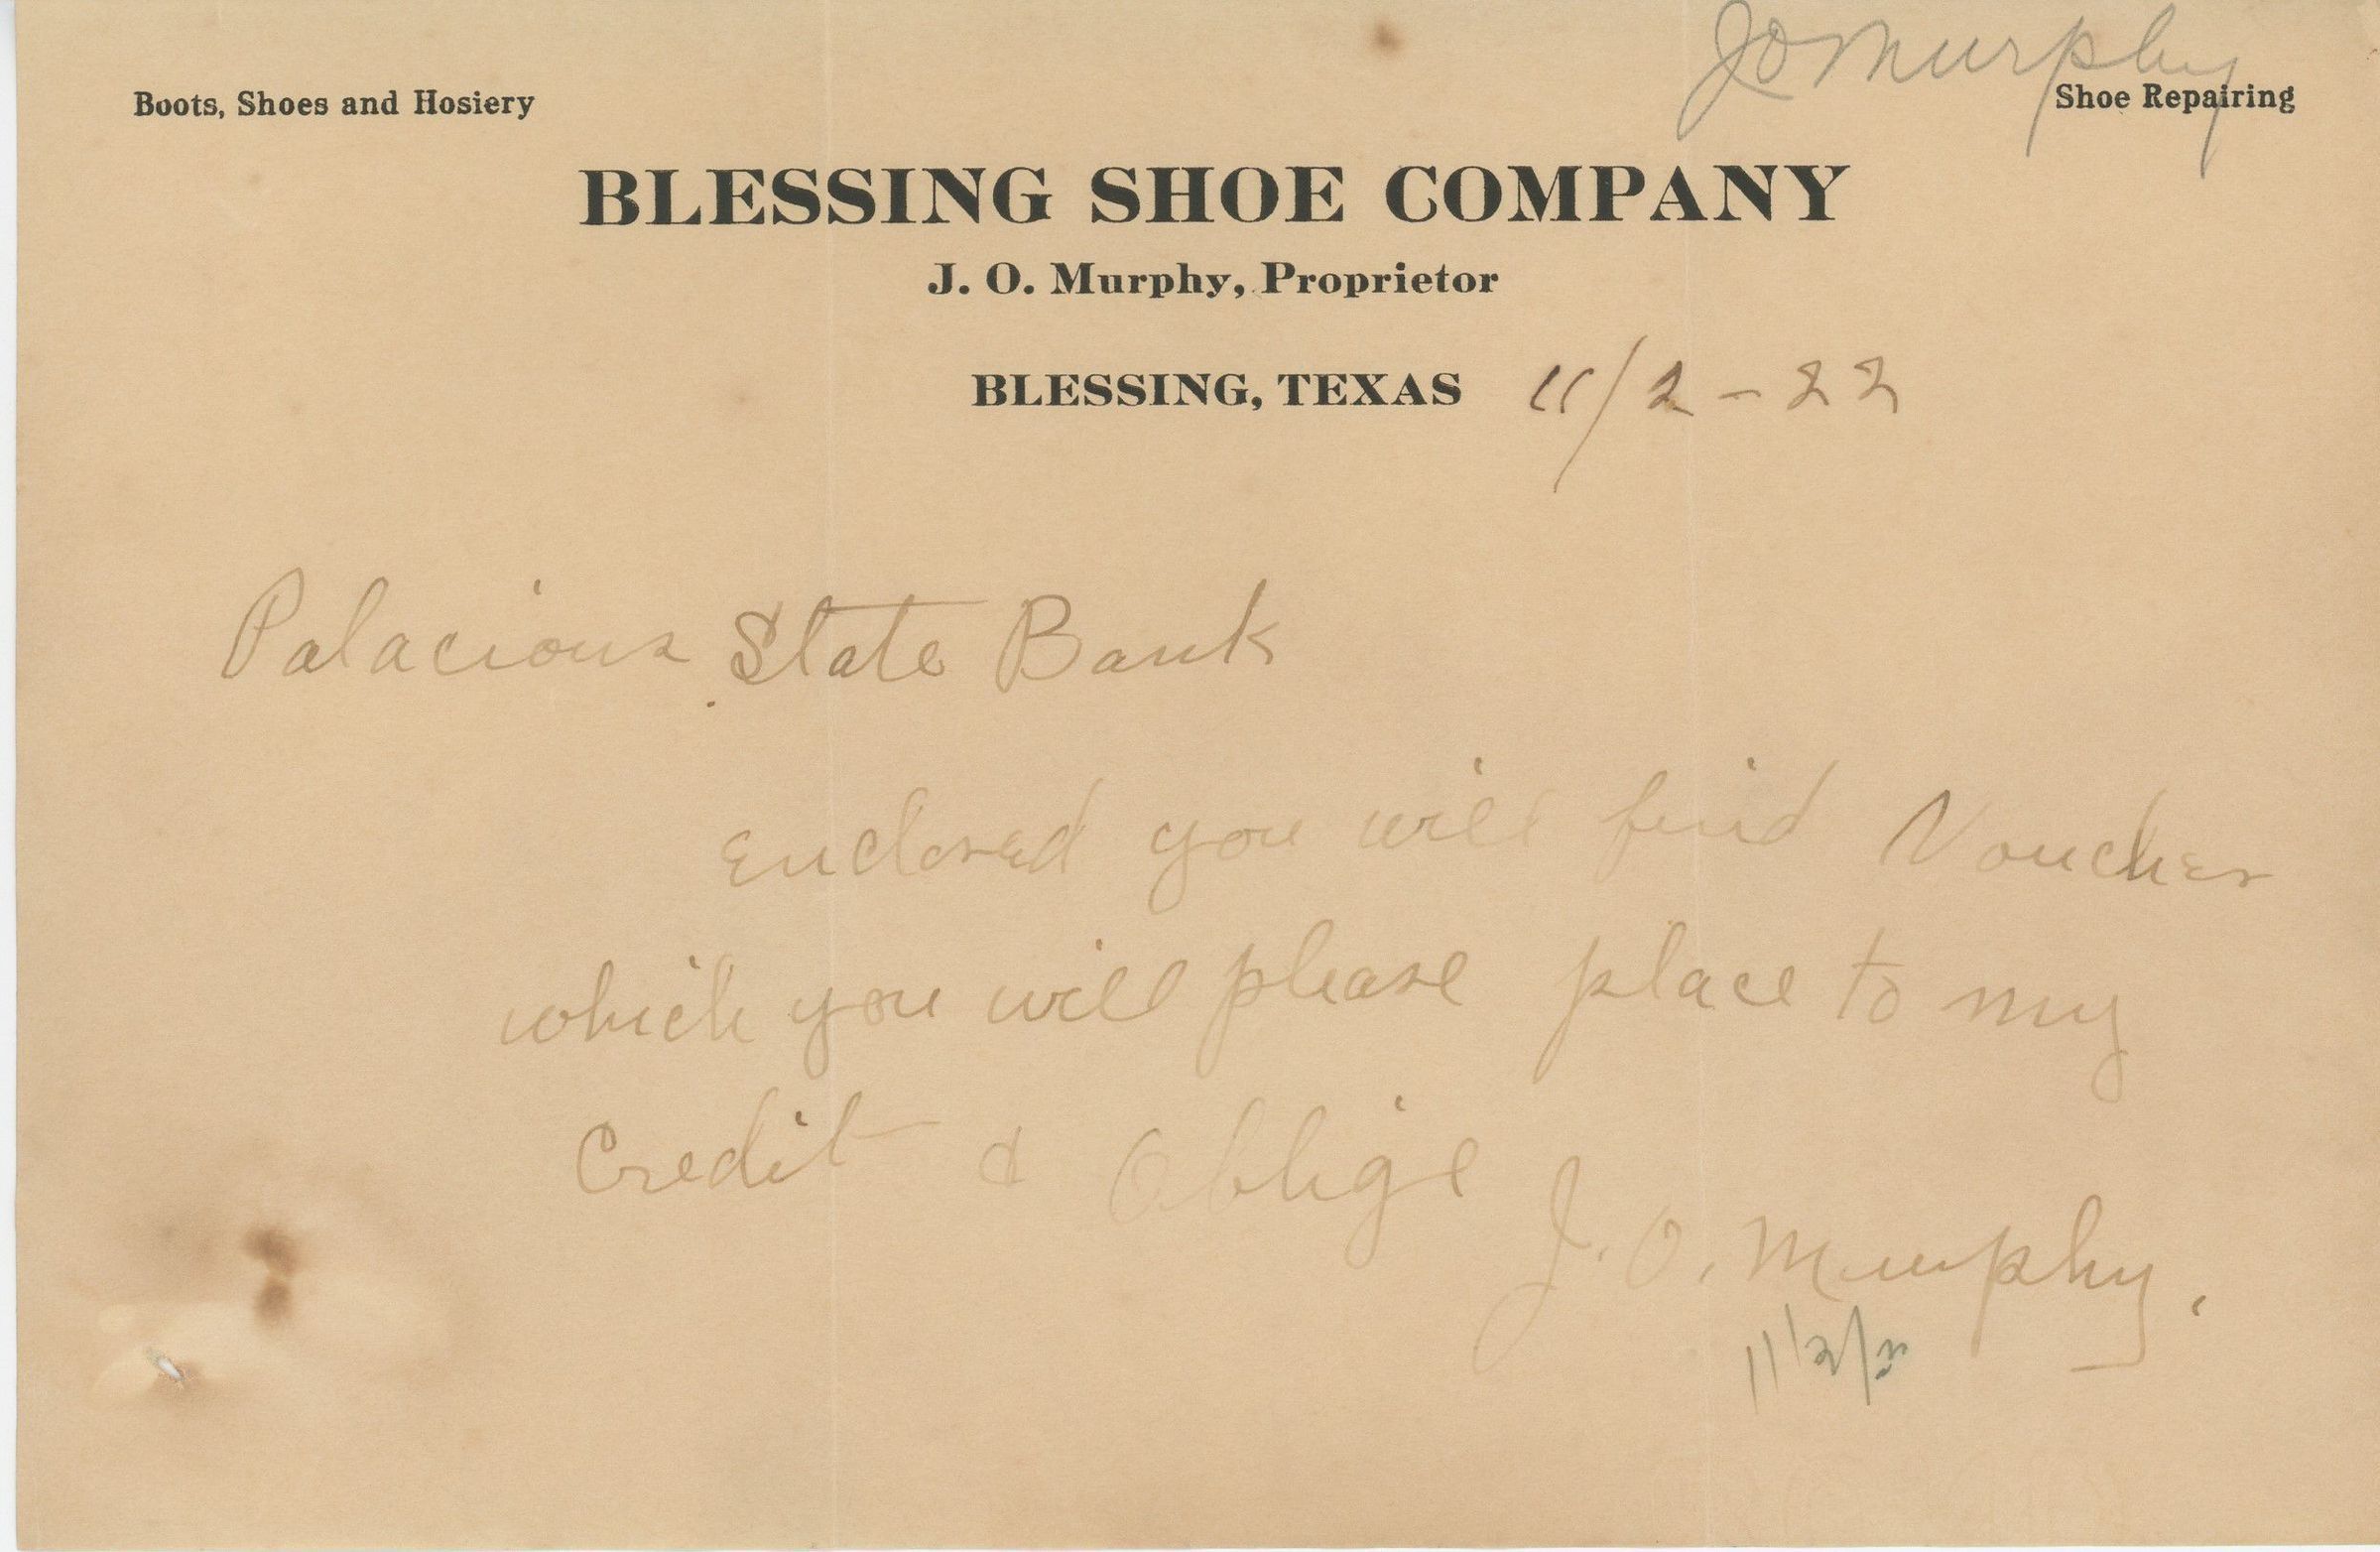 JO Murphy
Boots, Shoes and Hosiery
Shoe Repairing
BLESSING SHOE COMPANY
J. O. Murphy, Proprietor
BLESSING, TEXAS 11/2-22
Palacious State Bank
Enclosed you will find Voucher
which you will please place to my
Credit & Oblige
J. O. Murphy.